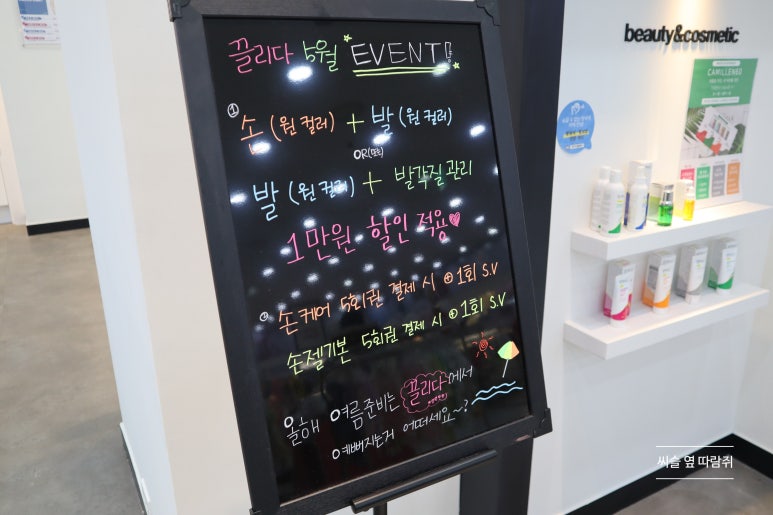 끌리다 5월 EVENT!
① 손 (원컬러) + 발 (원컬러)
OR(또는)
발 (원컬러) + 발각질관리
1만원 할인 적용♥
손케어 5회권 결제 시 ⊕ 1회 S.V
손젤기본 5회권 결제 시 ⊕ 1회 S.V
올해 여름준비는 끌리다에서
예뻐지는거 어떠세요~?
beauty&cosmetic
CAMILLENEO
씨슬 옆 따람쥐